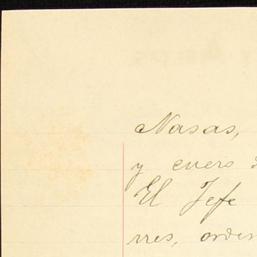 Nasas,
y enero
El Jefe
rres, orden